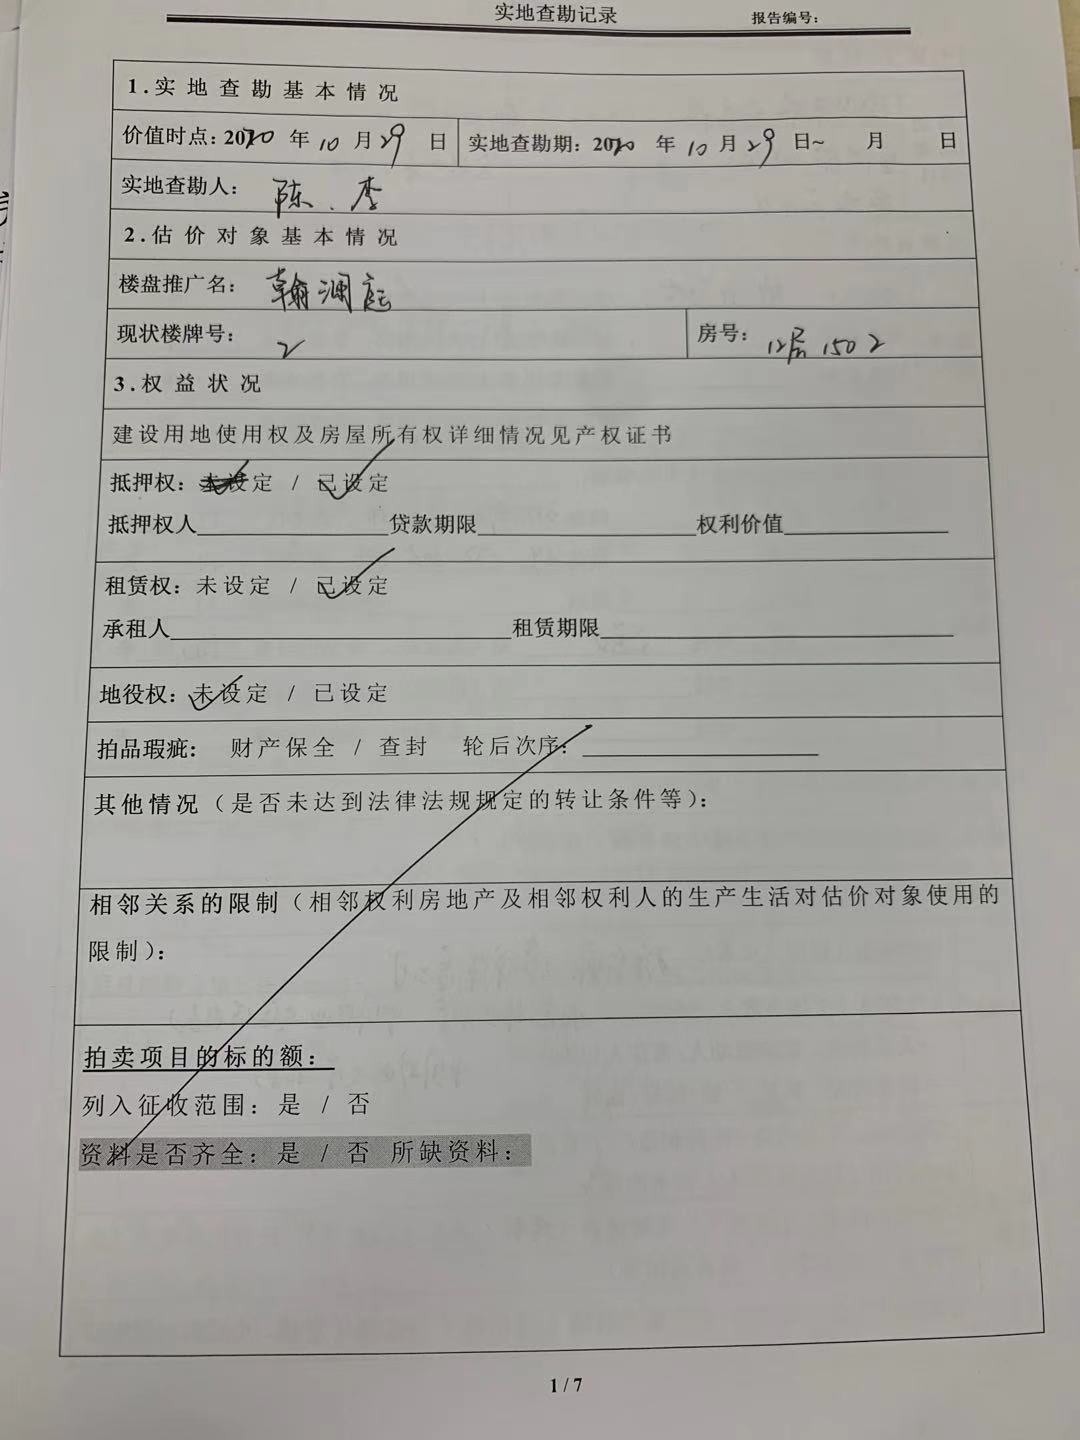 实地查勘记录 报告编号：
1.实地查勘基本情况
价值时点：2020 年 10 月 29 日 实地查勘期：2020 年 10 月 29 日~ 月 日
实地查勘人： 陈、李
2.估价对象基本情况
楼盘推广名： 翰澜庭
现状楼牌号： 2 房号： 12层 1502
3.权益状况
建设用地使用权及房屋所有权详细情况见产权证书
抵押权：未设定 / 已设定
抵押权人 贷款期限 权利价值
租赁权：未设定 / 已设定
承租人 租赁期限
地役权：未设定 / 已设定
拍品瑕疵： 财产保全 / 查封 轮后次序：
其他情况（是否未达到法律法规规定的转让条件等）：
相邻关系的限制（相邻权利房地产及相邻权利人的生产生活对估价对象使用的
限制）：
拍卖项目的标的额：
列入征收范围：是 / 否
资料是否齐全：是 / 否 所缺资料：
1 / 7